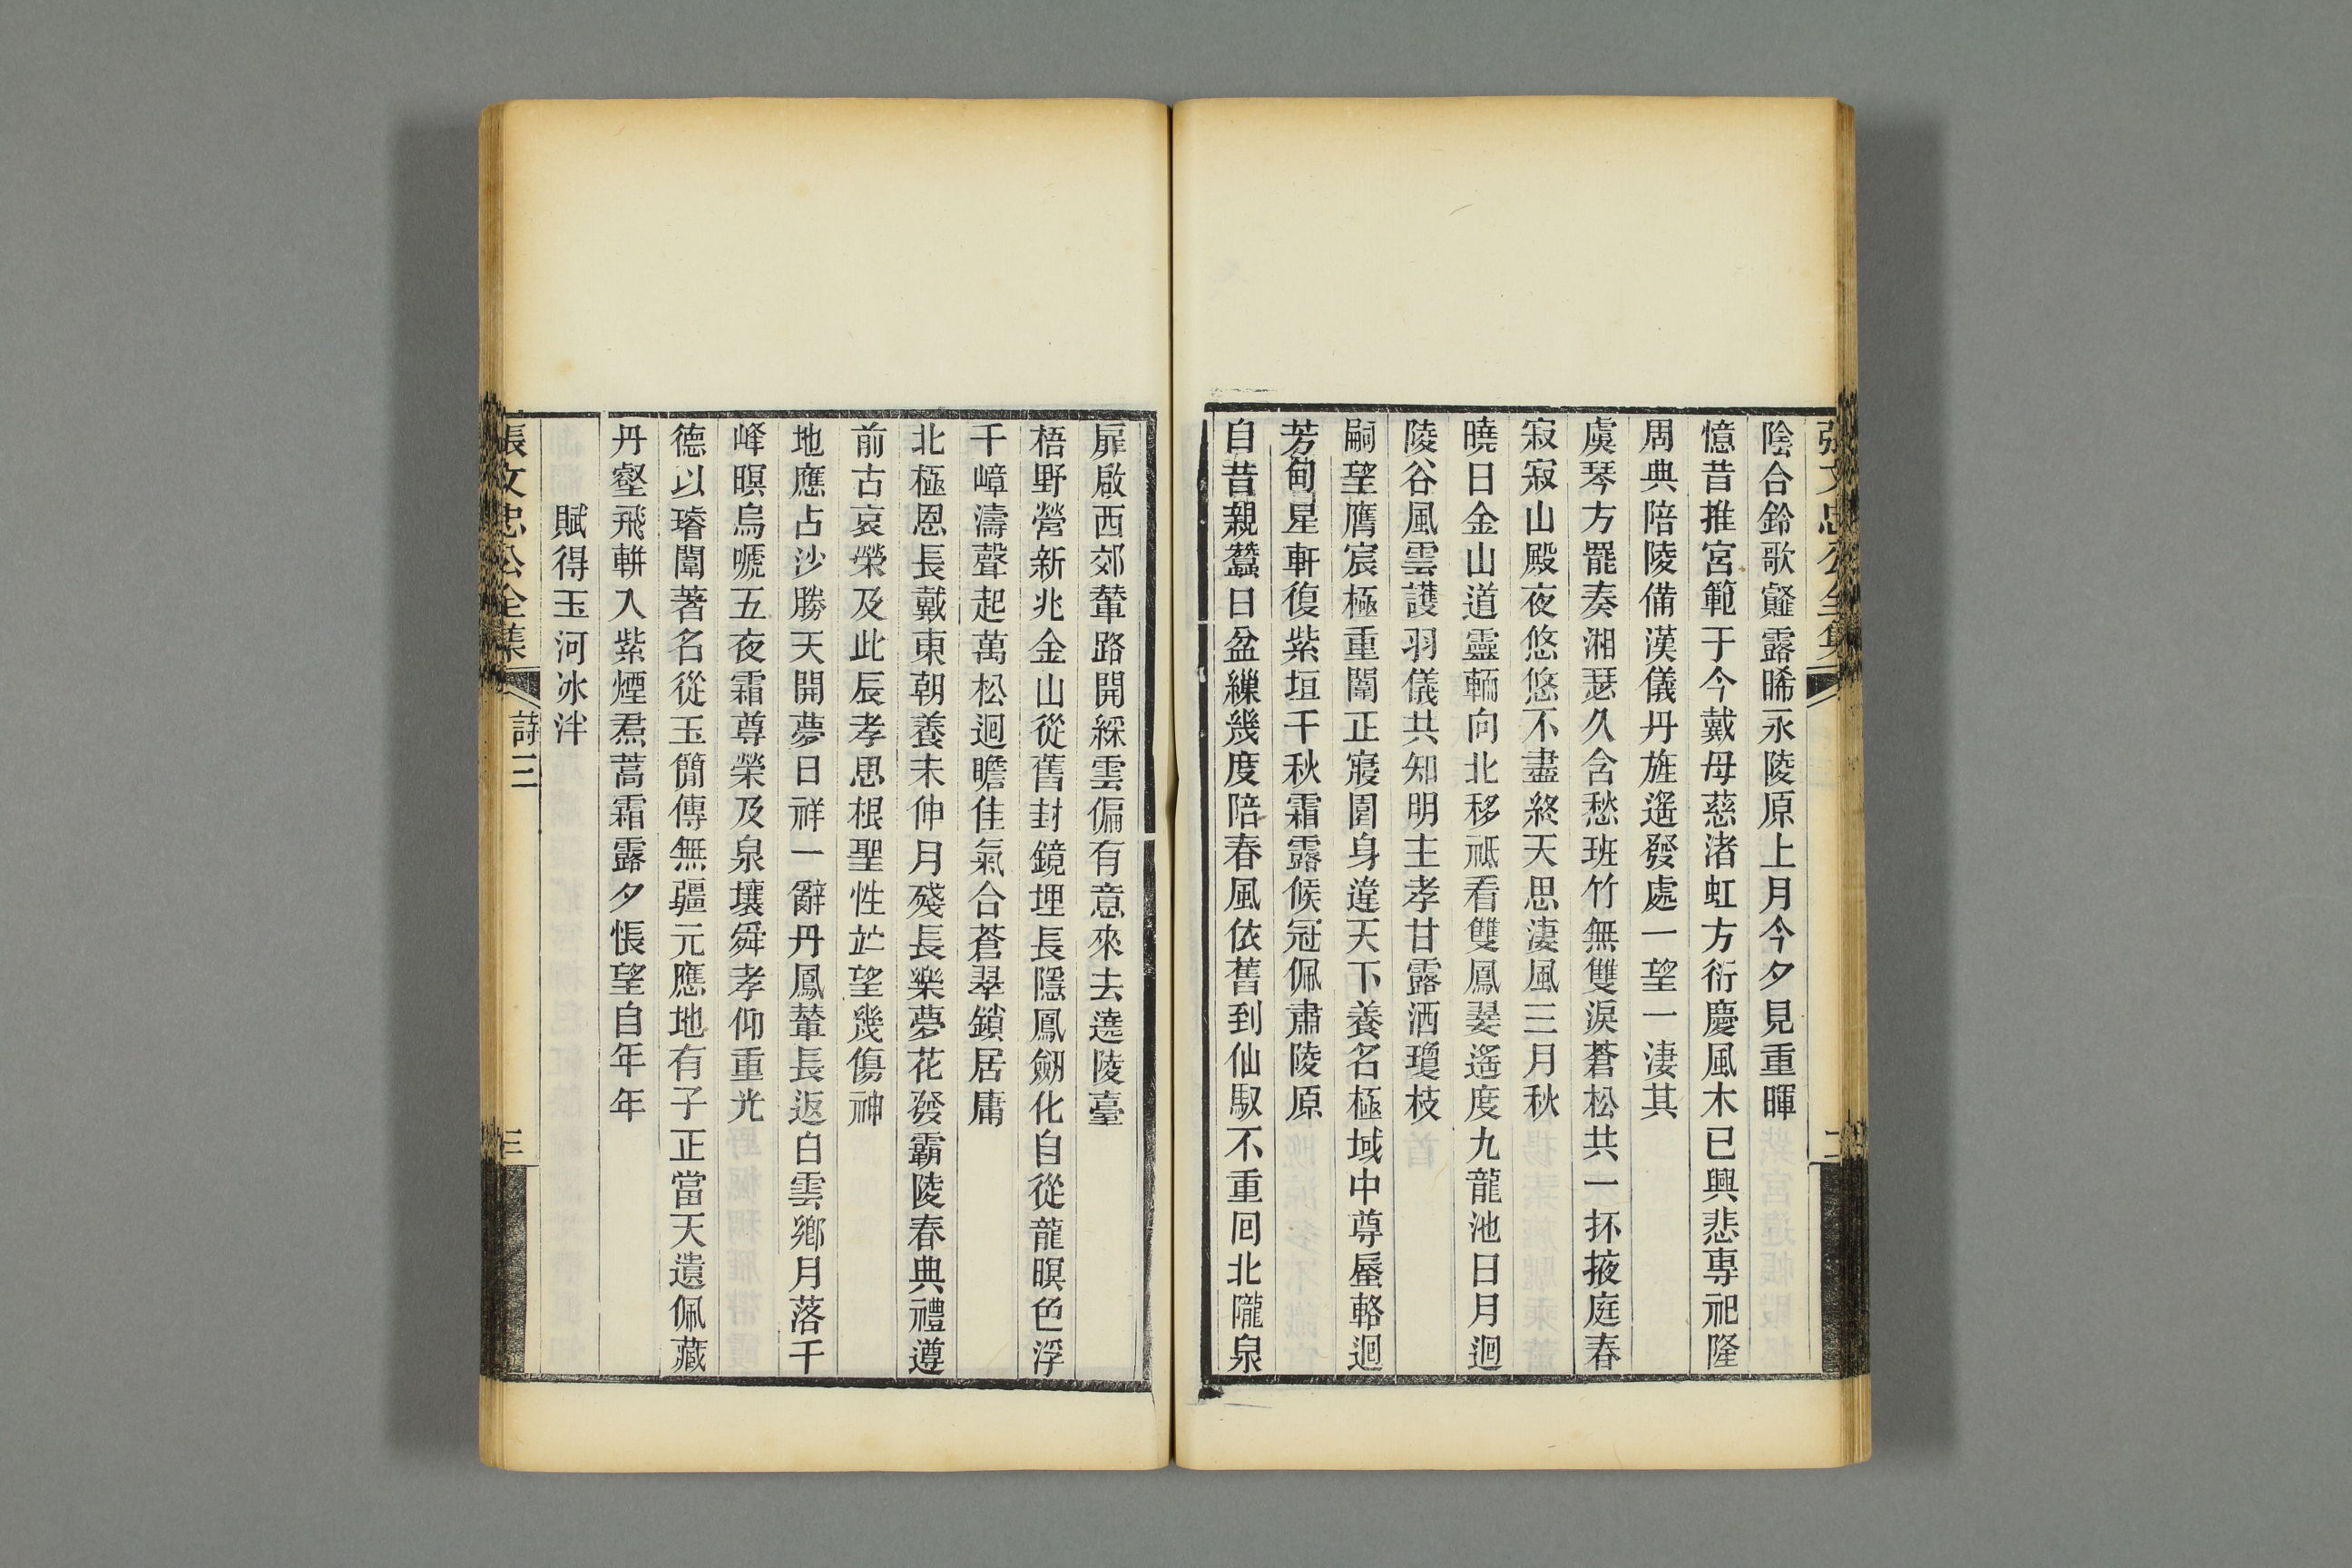 張文忠公全集
二
陰合鈴歌薤露晞永陵原上月今夕見重暉
憶昔推宮範于今戴母慈渚虹方衍慶風木已興悲專祀隆
周典陪陵備漢儀丹旌遙發處一望一淒其
虞琴方罷奏湘瑟久含愁班竹無雙淚蒼松共一抔掖庭春
寂寂山殿夜悠悠不盡終天思淒風三月秋
曉日金山道靈輀向北移祗看雙鳳翣遙度九龍池日月迴
陵谷風雲護羽儀共知明主孝甘露洒瓊枝
嗣望膺宸極重闈正寢圍身違天下養名極域中尊蜃輅迴
芳甸星軒復紫垣千秋霜露候冠佩肅陵原
自昔親蠶日盆繅幾度陪春風依舊到仙馭不重回北隴泉
扉啟西郊輦路開綵雲偏有意來去遶陵臺
梧野營新兆金山從舊封鏡埋長隱鳳劒化自從龍暝色浮
千嶂濤聲起萬松迴瞻佳氣合蒼翠鎖居庸
北極恩長戴東朝養未伸月殘長樂夢花發霸陵春典禮遵
前古哀榮及此辰孝思根聖性㟁望幾傷神
地應占沙勝天開夢日祥一辭丹鳳輦長返白雲鄉月落千
峰暝烏嗁五夜霜尊榮及泉壤舜孝仰重光
德以璿闈著名從玉簡傳無疆元應地有子正當天遺佩藏
丹壑飛輧入紫煙焄蒿霜露夕悵望自年年
賦得玉河冰泮
張文忠公全集
詩三
三